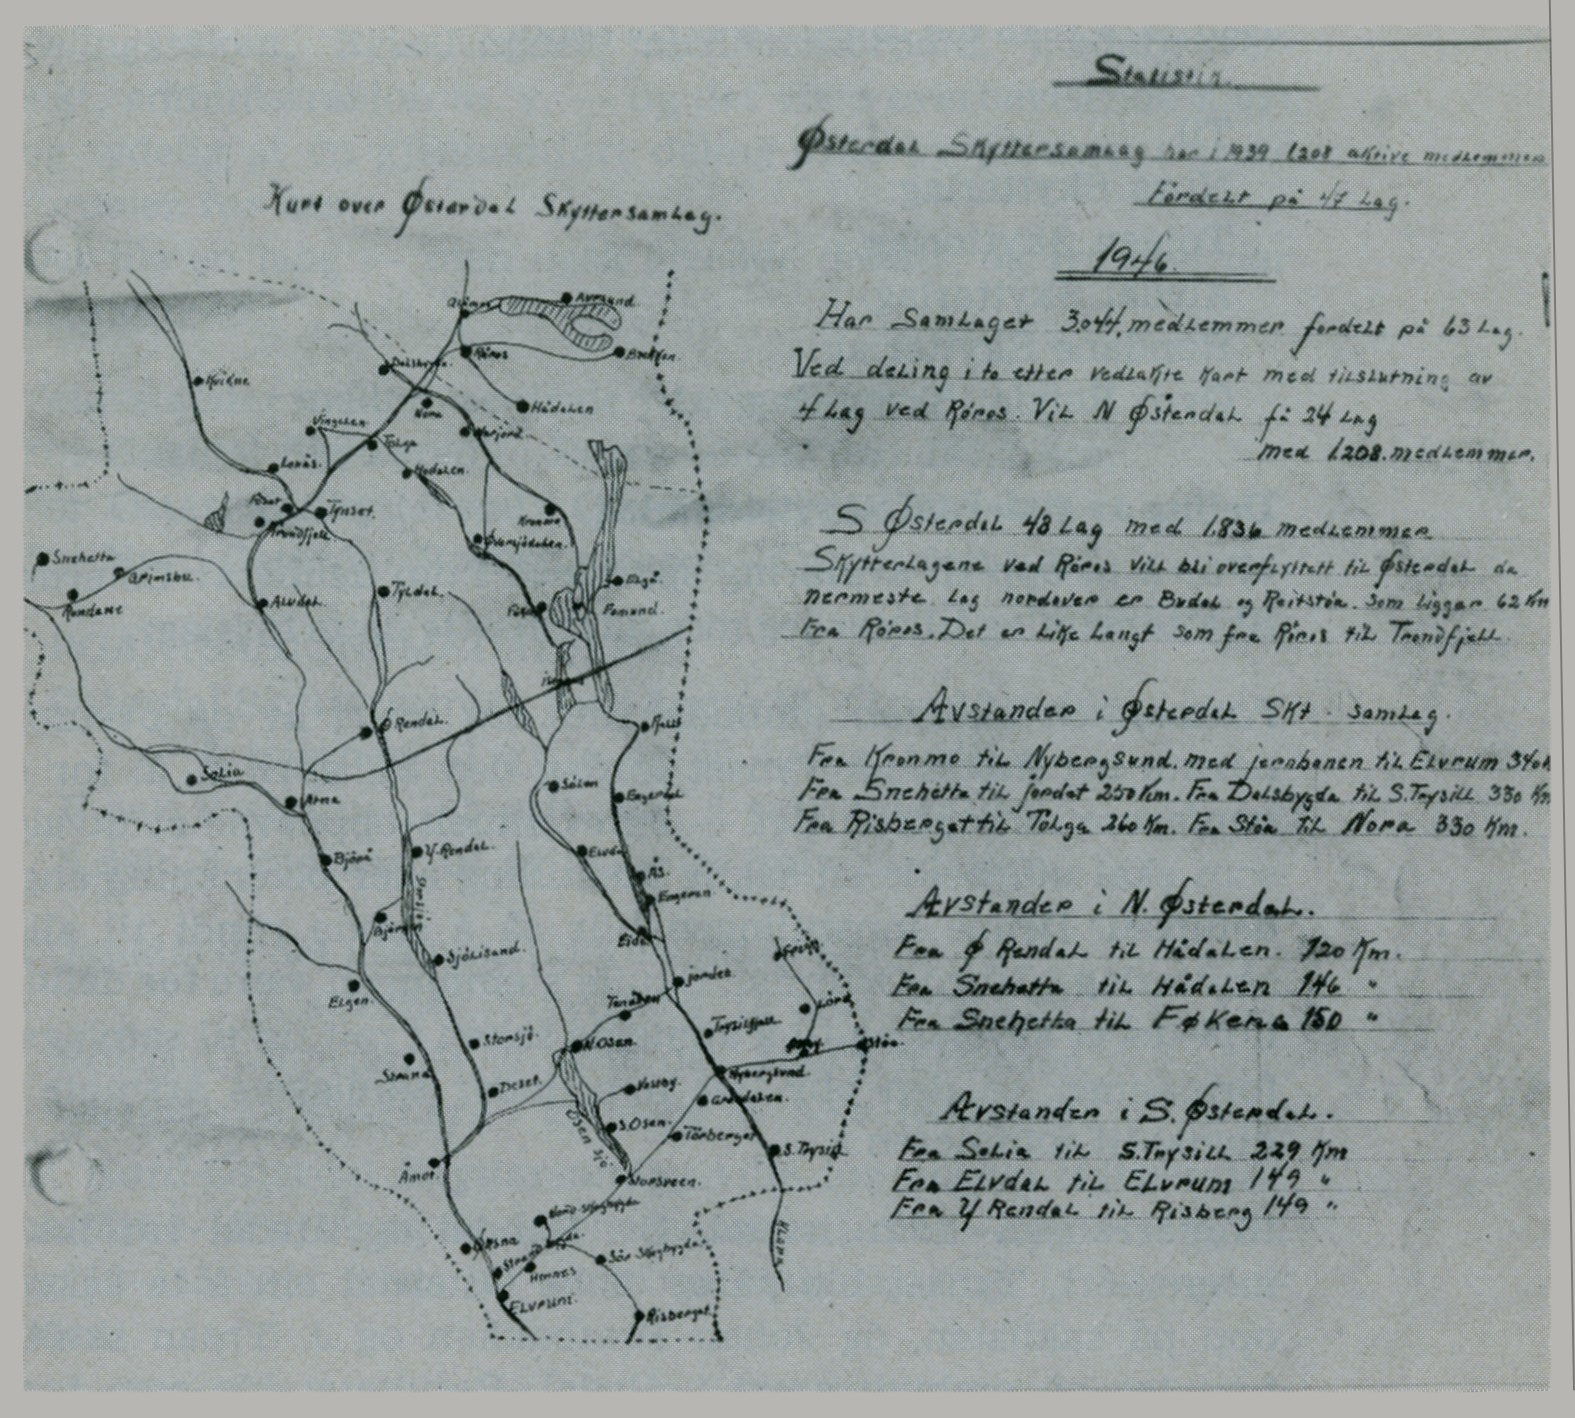 Statistik.
Østerdal Skyttersamlag har i 1939 1208 aktive medlemmer
Fordelt på 47 Lag.
Kart over Østerdal Skyttersamlag.
1946.
Har Samlaget 3.044. medlemmer fordelt på 63 Lag.
Ved deling i to etter vedlakte kart med tilslutning av
4 Lag ved Röros. Vil N Østerdal få 24 Lag
med 1.208. medlemmer.
S Østerdal 43 Lag med 1.836 medlemmer
Skytterlagene ved Röros vill bli overflyttett til Østerdal da
nermeste Lag nordover er Budal og Reitstöa. Som ligger 62 Km
Fra Röros. Det er Like Langt som fra Röros til Trondfjell.
Avstander i Østerdal Skt. samlag.
Fra Kronmo til Nybergsund. med jernbanen til Elvrum 340
Fra Snehetta til jordet 250 Km. Fra Dalsbygda til S. Trysill 330 Km
Fra Risberget til Tolga 260 Km. Fra Stöa til Nora 330 Km.
Avstander i N. Østerdal.
Fra Ø Rendal til Hådalen. 120 Km.
Fra Snehetta til Hådalen 146 "
Fra Snehetta til Føkena 150 "
Avstander i S. Østerdal.
Fra Solia til S. Trysill 229 Km
Fra Elvdal til Elvrum 149 "
Fra Y Rendal til Risberg 149 "
Aursund.
Röros
Brekken.
Dalsbygda.
Kvikne
Nora
Hådalen
Vingelen
Tolga
Narjord.
Lonås.
Hodalen.
Fåset
Tynset.
Kronmo
Trondfjell
Øversjödalen.
Snehetta
Grimsbu.
Rondane
Alvdal.
Tyldal.
Elgå.
Femund.
Ø Rendal.
Solia
Sölen
Engerdal
Atna
Björå
Y-Rendal.
Elvdal
Ås.
Engeren.
Eidet
Sjölisand.
jordet.
Lörd
Elgen.
Tenåsen
Trysilfjell
Storsjö.
N.Osen.
Stöa.
Strand
Nybergsund.
Deset.
Vestby.
Grändalen.
Osen sjö
S.Osen.
Törberget
S. Trysil
Åmot.
Storsveen.
Nord-Skogbygda
Sör Skogbygda
Strandbygda.
Hernes
Elvrum.
Risberget.
Klara